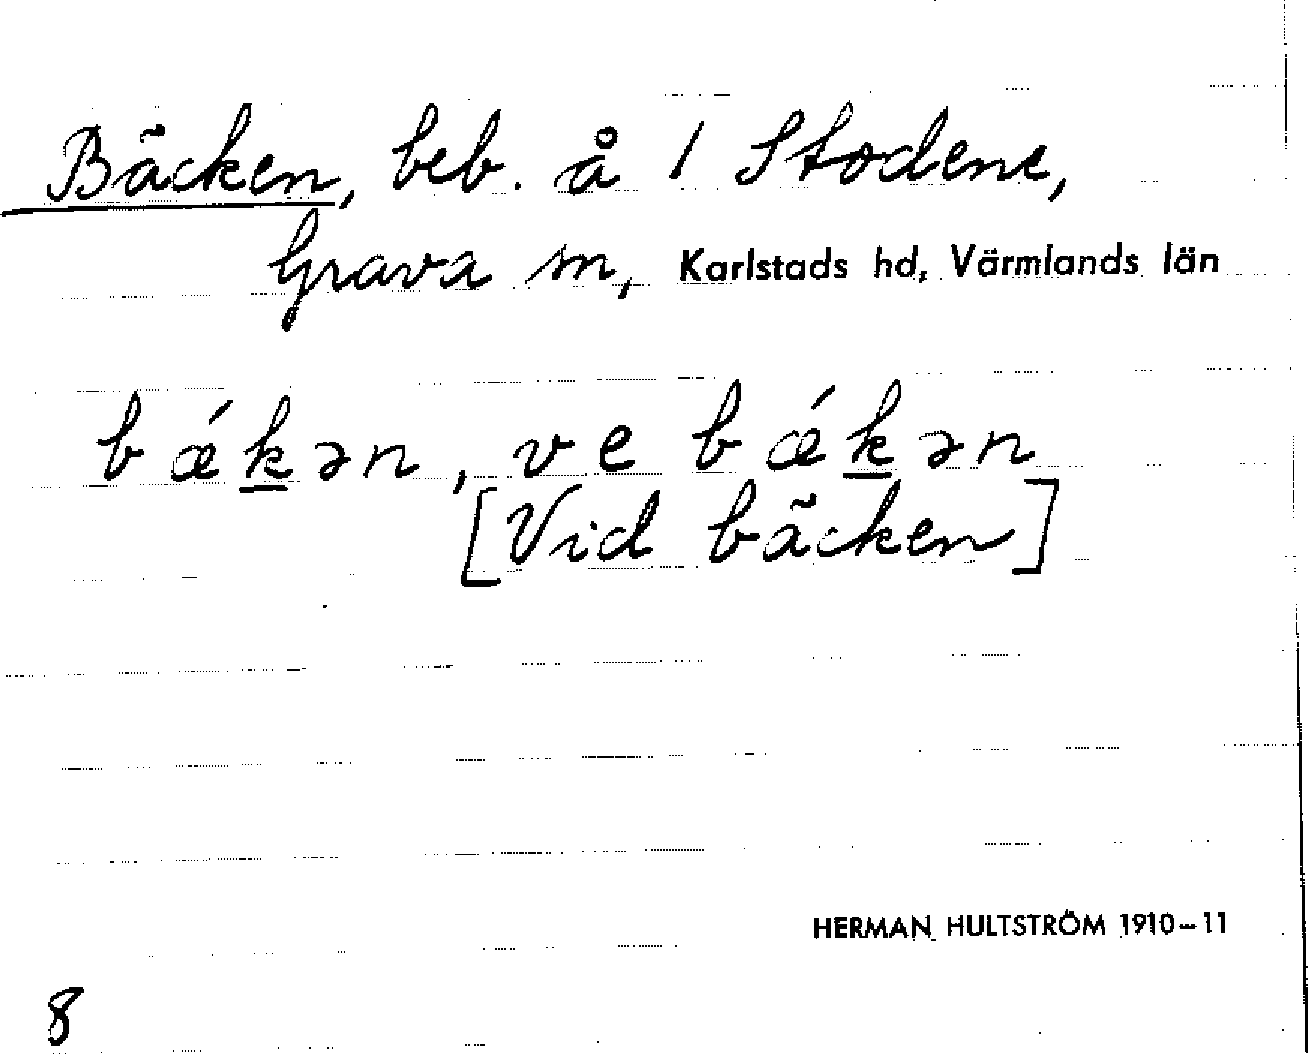 Bäcken, beb. å 1 Stodene,
Grava sn, Karlstads hd, Värmlands län
bǽk̲ən, ve bǽk̲ən
[Vid bäcken]
HERMAN HULTSTRÖM 1910–11
8